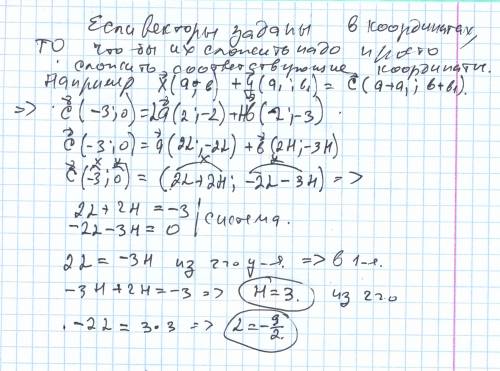 Если векторы заданы в координатах,
то что бы их сложить надо просто
сложить соответствующие координаты.
Например x⃗(a;b) + y⃗(a₁;b₁) = c⃗(a+a₁; b+b₁).
=> c⃗(-3;0) = La⃗(2;-2) + Hb⃗(2;-3)
c⃗(-3;0) = a⃗(2L;-2L) + b⃗(2H;-3H)
c⃗(-3;0) = (2L+2H; -2L-3H) =>
2L+2H = -3
-2L-3H = 0 | система.
2L = -3H из 2го у-я. => в 1-е.
-3H+2H = -3 => H=3. из 2го
-2L = 3·3 => L = -9/2